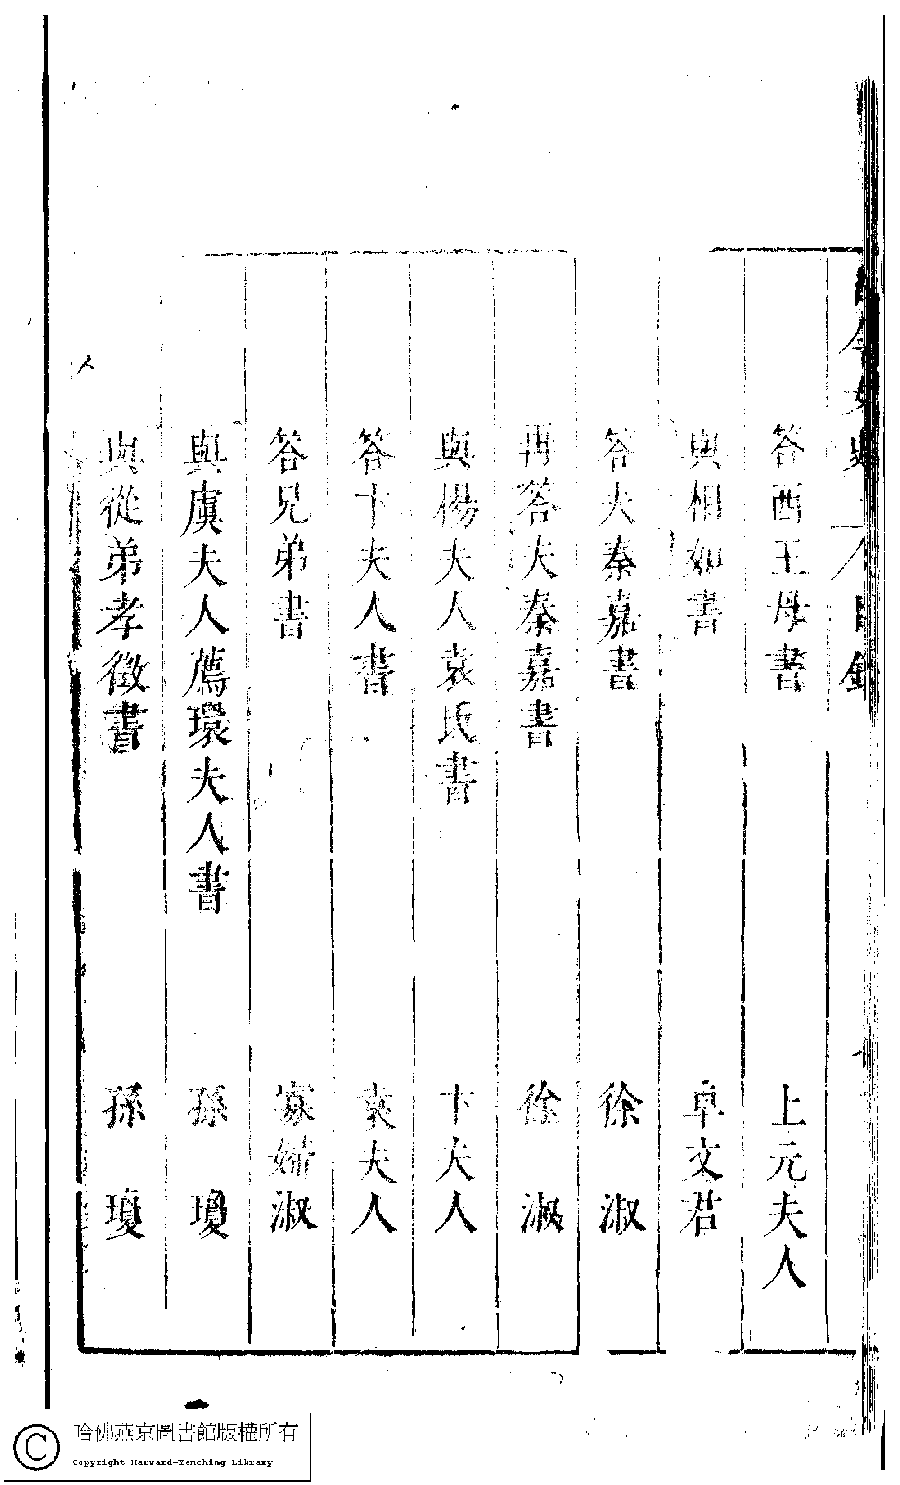 古今女史 八目錄
答西王母書 上元夫人
與相如書 卓文君
答夫秦嘉書 徐淑
再答夫秦嘉書 徐淑
與楊夫人袁氏書 卞夫人
答卞夫人書 袁夫人
答兄弟書 寡婦淑
與虞夫人薦環夫人書 孫瓊
與從弟孝徵書 孫瓊
哈佛燕京圖書館版權所有
Copyright Harvard-Yenching Library